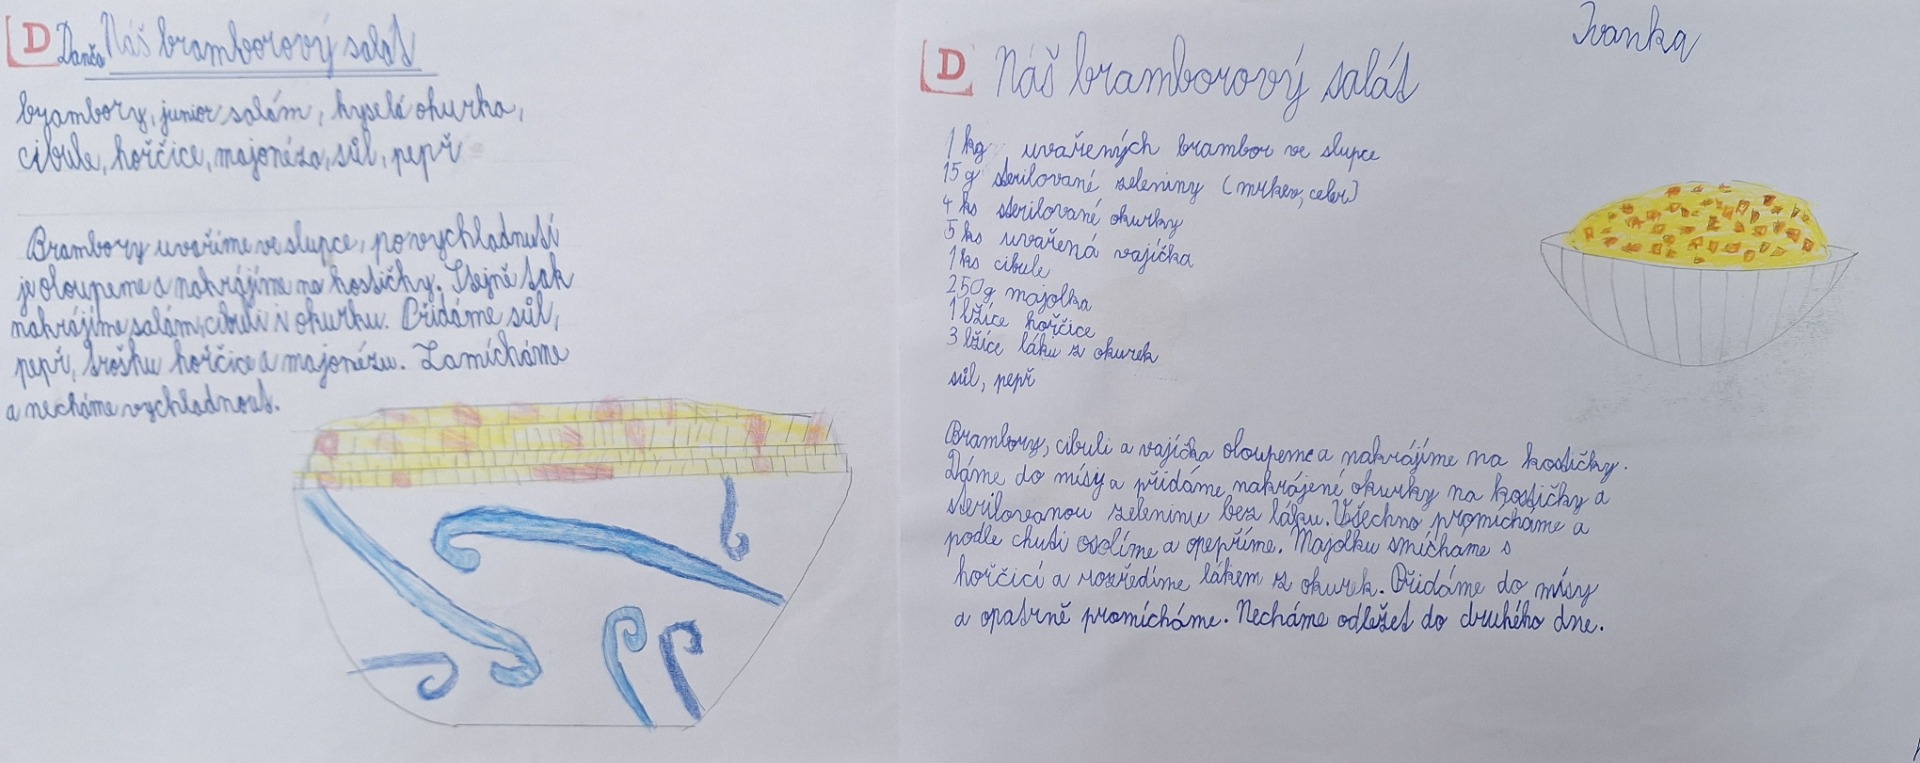 D Danča Náš bramborový salát
brambory, junior salám, kyselá okurka,
cibule, hořčice, majonéza, sůl, pepř
Brambory uvaříme ve slupce, po vychladnutí
je oloupeme a nakrájíme na kostičky. Stejně tak
nakrájíme salám, cibuli i okurku. Přidáme sůl,
pepř, trošku hořčice a majonézu. Zamícháme
a necháme vychladnout.
Ivanka
D Náš bramborový salát
1 kg uvařených brambor ve slupce
15 g sterilované zeleniny (mrkev, celer)
4 ks sterilované okurky
5 ks uvařená vajíčka
1 ks cibule
250g majolka
1 lžíce hořčice
3 lžíce láku z okurek
sůl, pepř
Brambory, cibuli a vajíčka oloupeme a nakrájíme na kostičky.
Dáme do mísy a přidáme nakrájené okurky na kostičky a
sterilovanou zeleninu bez láku. Všechno promícháme a
podle chuti osolíme a opepříme. Majolku smícháme s
hořčicí a rozředíme lákem z okurek. Přidáme do mísy
a opatrně promícháme. Necháme odležet do druhého dne.